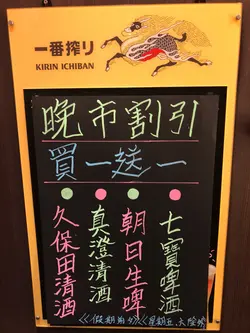 一番搾り
KIRIN ICHIBAN
晚市割引
買一送一
七寶啤酒
朝日生啤
真澄清酒
久保田清酒